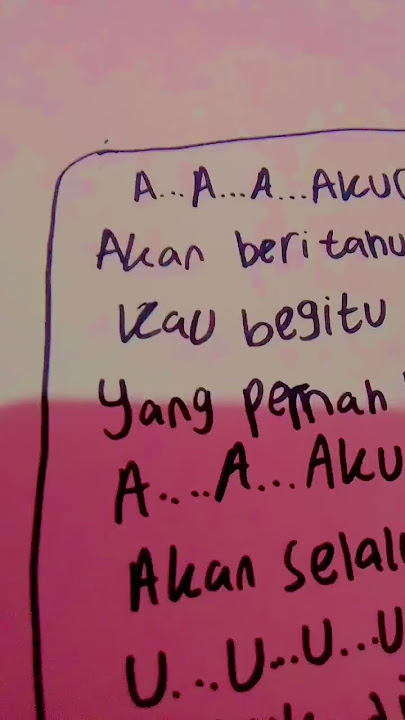 A...A...A...AKU
Akan beritahu
Kau begitu
Yang pernah
A....A...AKU
Akan selalu
U...U...U...U